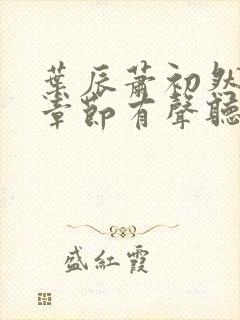 葉辰蕭初然
章節有聲聽
盛紅霞